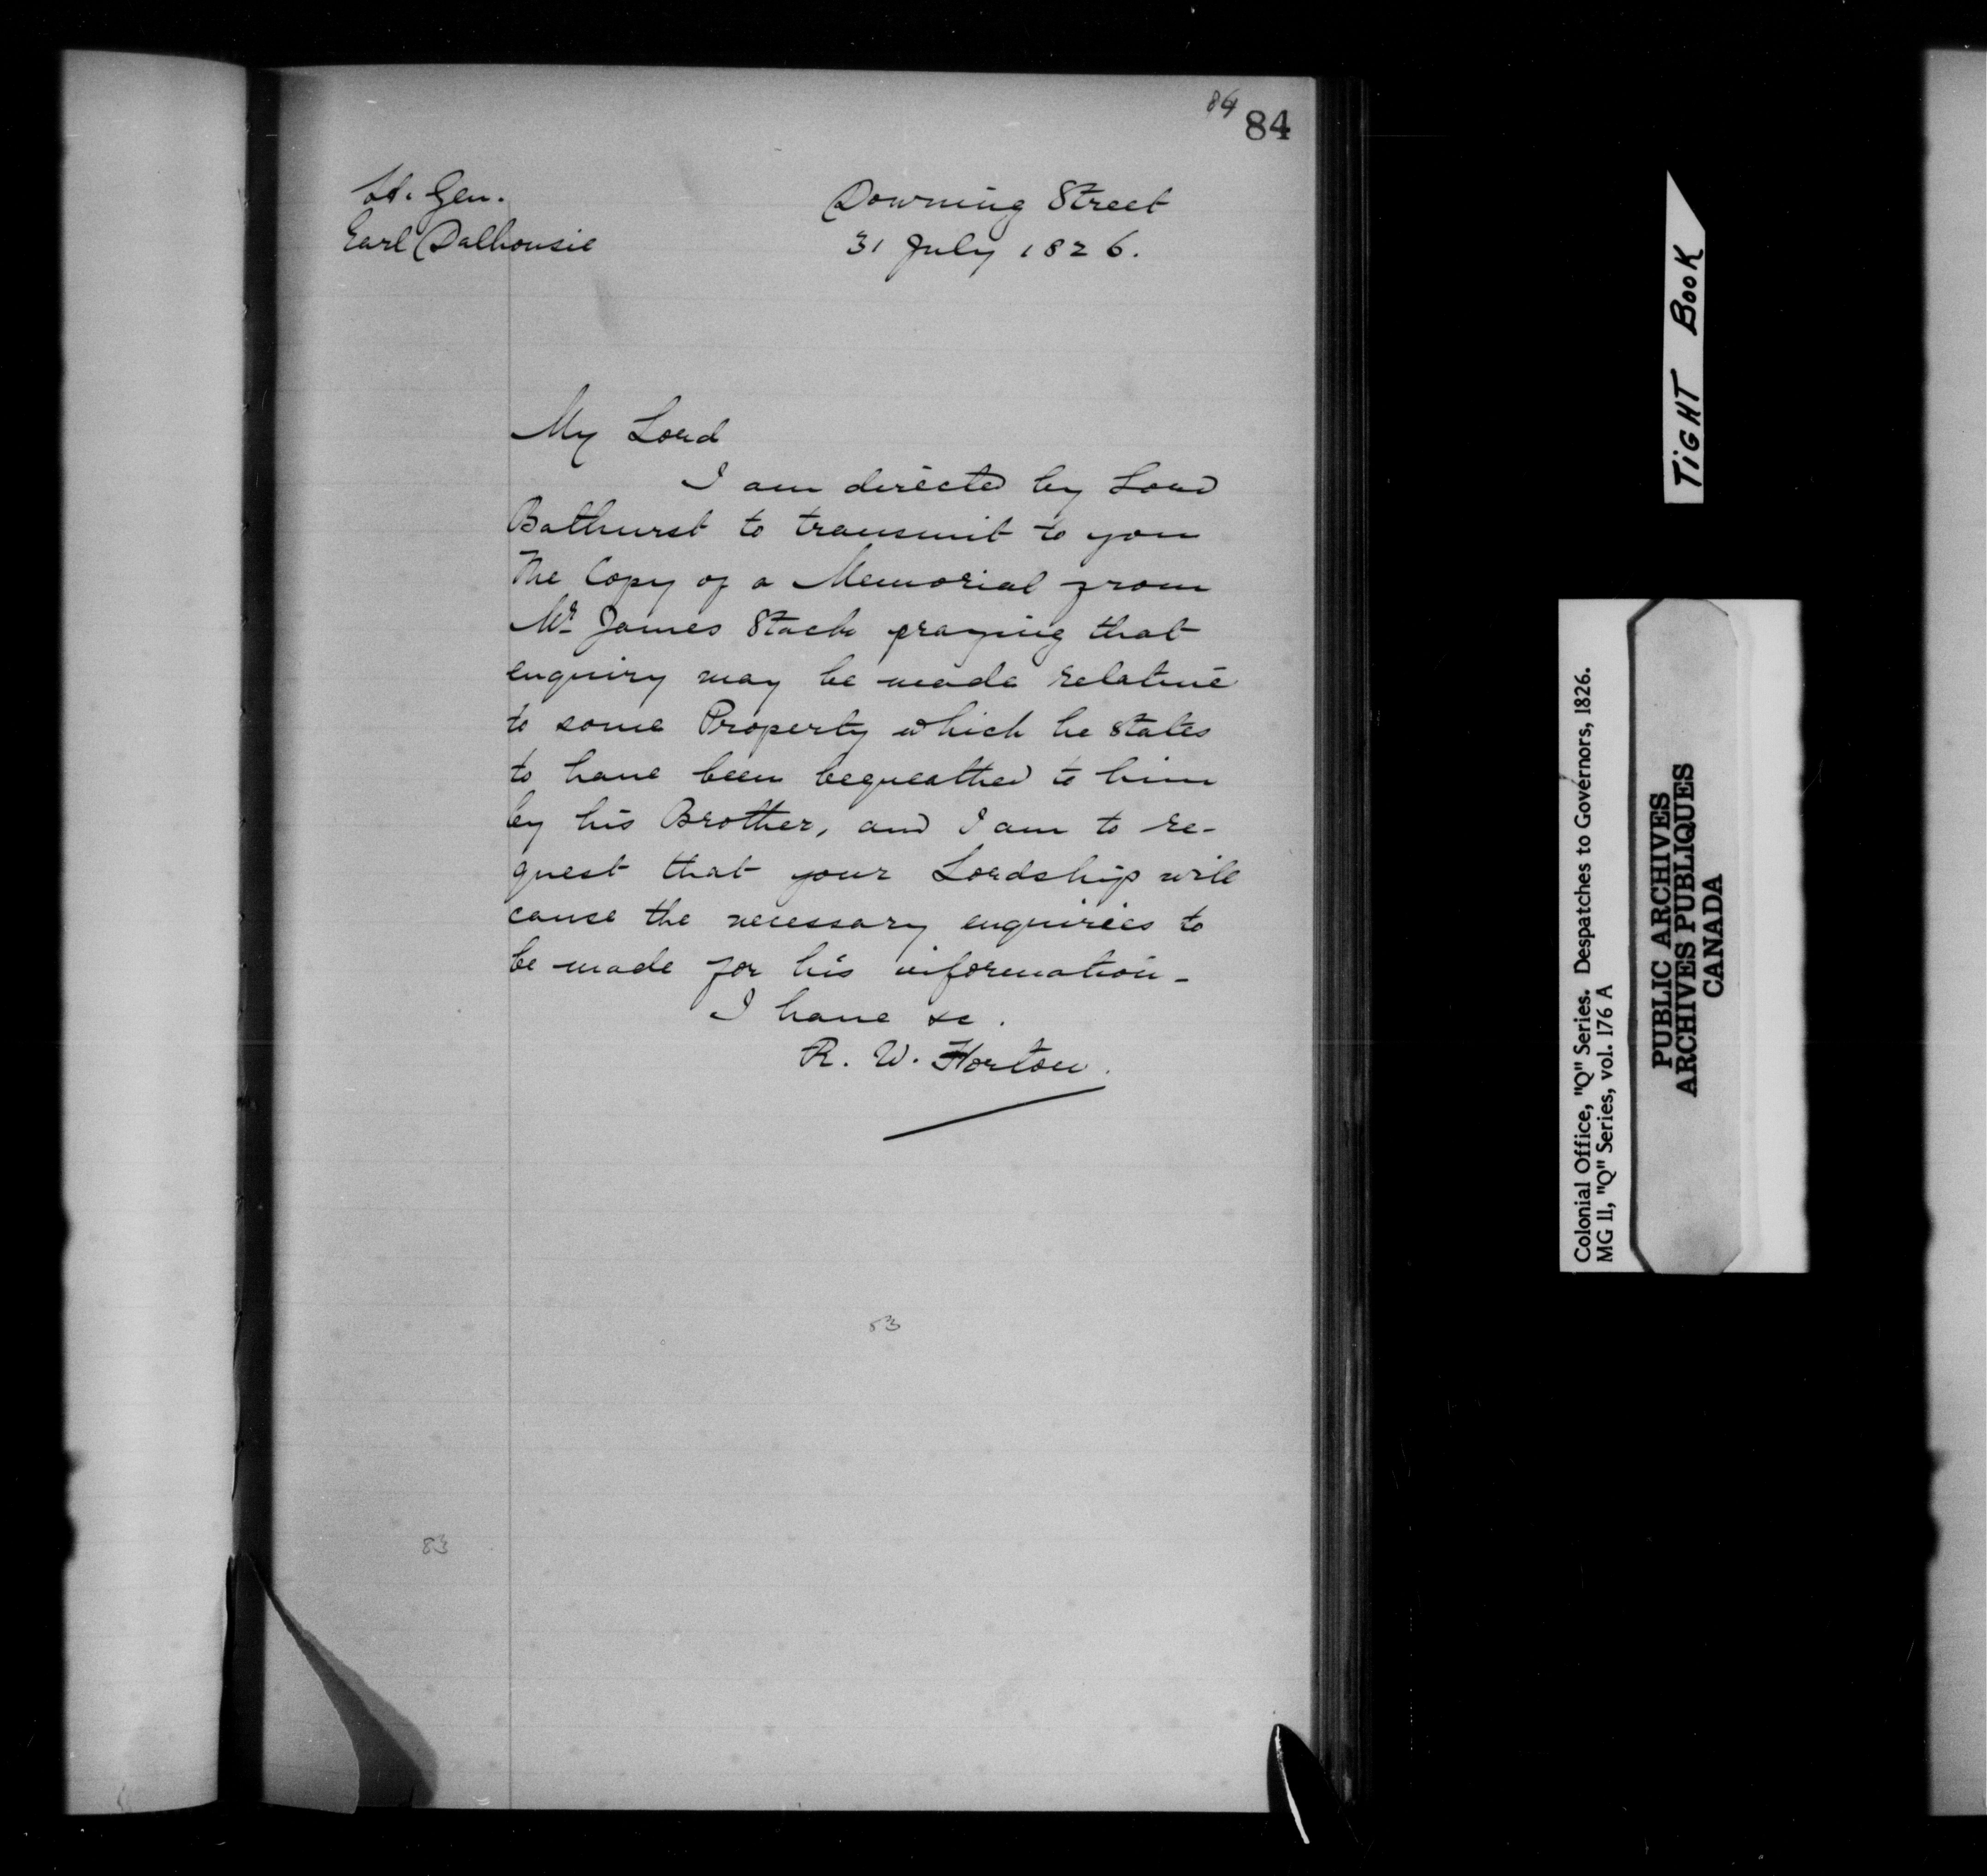 84
84
Lt. Gen.
Earl Dalhousie
Downing Street
31 July 1826.
My Lord
I am directed by Lord
Bathurst to transmit to you
The Copy of a Memorial from
Mr James Stack praying that
enquiry may be made relative
to some Property which he states
to have been bequeathed to him
by his Brother, and I am to re-
quest that your Lordship will
cause the necessary enquiries to
be made for his information -
I have &c.
R. W. Horton.
53
83
TIGHT BOOK
Colonial Office, "Q" Series. Despatches to Governors, 1826.
MG 11, "Q" Series, vol. 176 A
PUBLIC ARCHIVES
ARCHIVES PUBLIQUES
CANADA